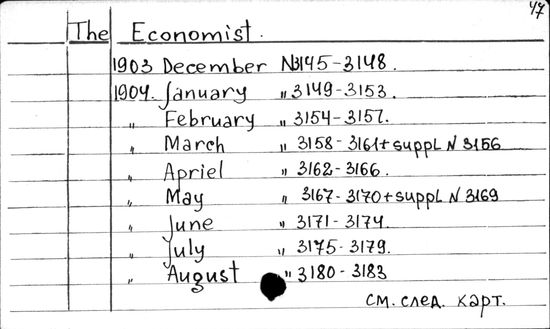 47
The Economist.
1903 December N3145-3148.
1904. January " 3149-3153.
" February " 3154-3157.
" March " 3158-3161+suppl N 3156
" Apriel " 3162-3166.
" May " 3167-3170+suppl N 3169
" June " 3171-3174.
" July " 3175-3179.
" August " 3180-3183
см. след. карт.